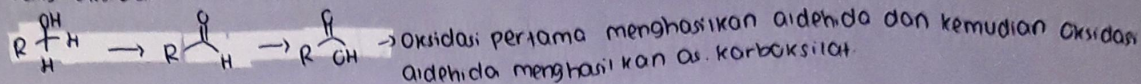 OH
R H → R O H → R O OH → Oksidasi pertama menghasilkan aldehida dan kemudian oksidasi
H
aldehida menghasilkan as. karboksilat.